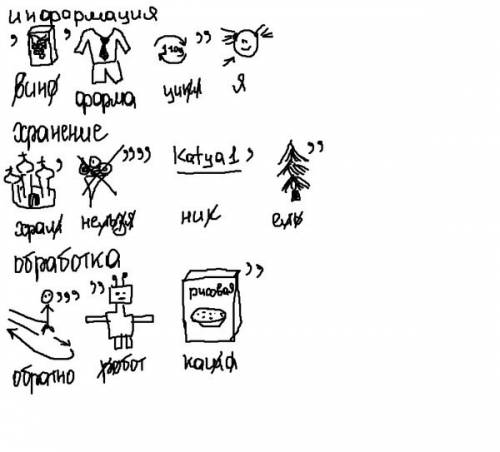 информация
1 год
вино форма цикл я
хранение
Katya1
храм нельзя ник ель
обработка
рисовая
обратно робот каша